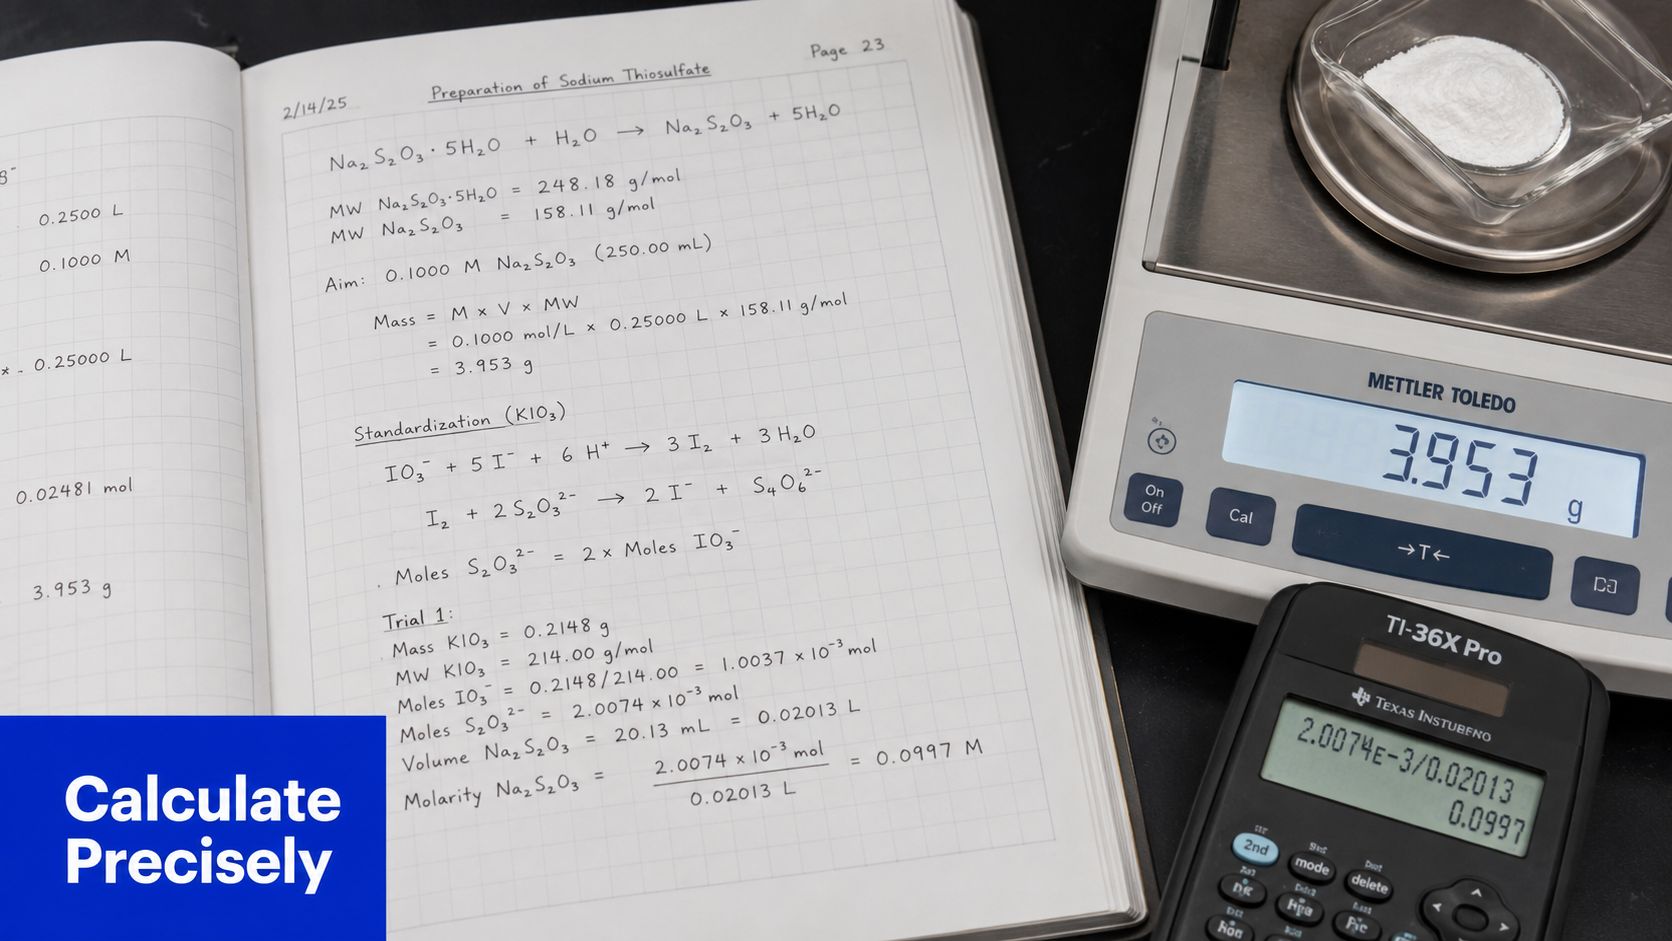 8-
0.2500 L
0.1000 M
0.25000 L
0.02481 mol
3.953 g
2/14/25
Preparation of Sodium Thiosulfate
Page 23
Na₂S₂O₃·5H₂O + H₂O → Na₂S₂O₃ + 5H₂O
MW Na₂S₂O₃·5H₂O = 248.18 g/mol
MW Na₂S₂O₃ = 158.11 g/mol
Aim: 0.1000 M Na₂S₂O₃ (250.00 mL)
Mass = M × V × MW
= 0.1000 mol/L × 0.25000 L × 158.11 g/mol
= 3.953 g
Standardization (KIO₃)
IO₃⁻ + 5 I⁻ + 6 H⁺ → 3 I₂ + 3 H₂O
I₂ + 2 S₂O₃²⁻ → 2 I⁻ + S₄O₆²⁻
Moles S₂O₃²⁻ = 2 × Moles IO₃⁻
Trial 1:
Mass KIO₃ = 0.2148 g
MW KIO₃ = 214.00 g/mol
Moles IO₃⁻ = 0.2148/214.00 = 1.0037 × 10⁻³ mol
Moles S₂O₃²⁻ = 2.0074 × 10⁻³ mol
Volume Na₂S₂O₃ = 20.13 mL = 0.02013 L
Molarity Na₂S₂O₃ = 2.0074 × 10⁻³ mol / 0.02013 L = 0.0997 M
METTLER TOLEDO
3.953 g
On
Off
Cal
→T←
TI-36X Pro
TEXAS INSTUBENO
2.0074E-3/0.02013
0.0997
2nd
mode
delete
Calculate
Precisely